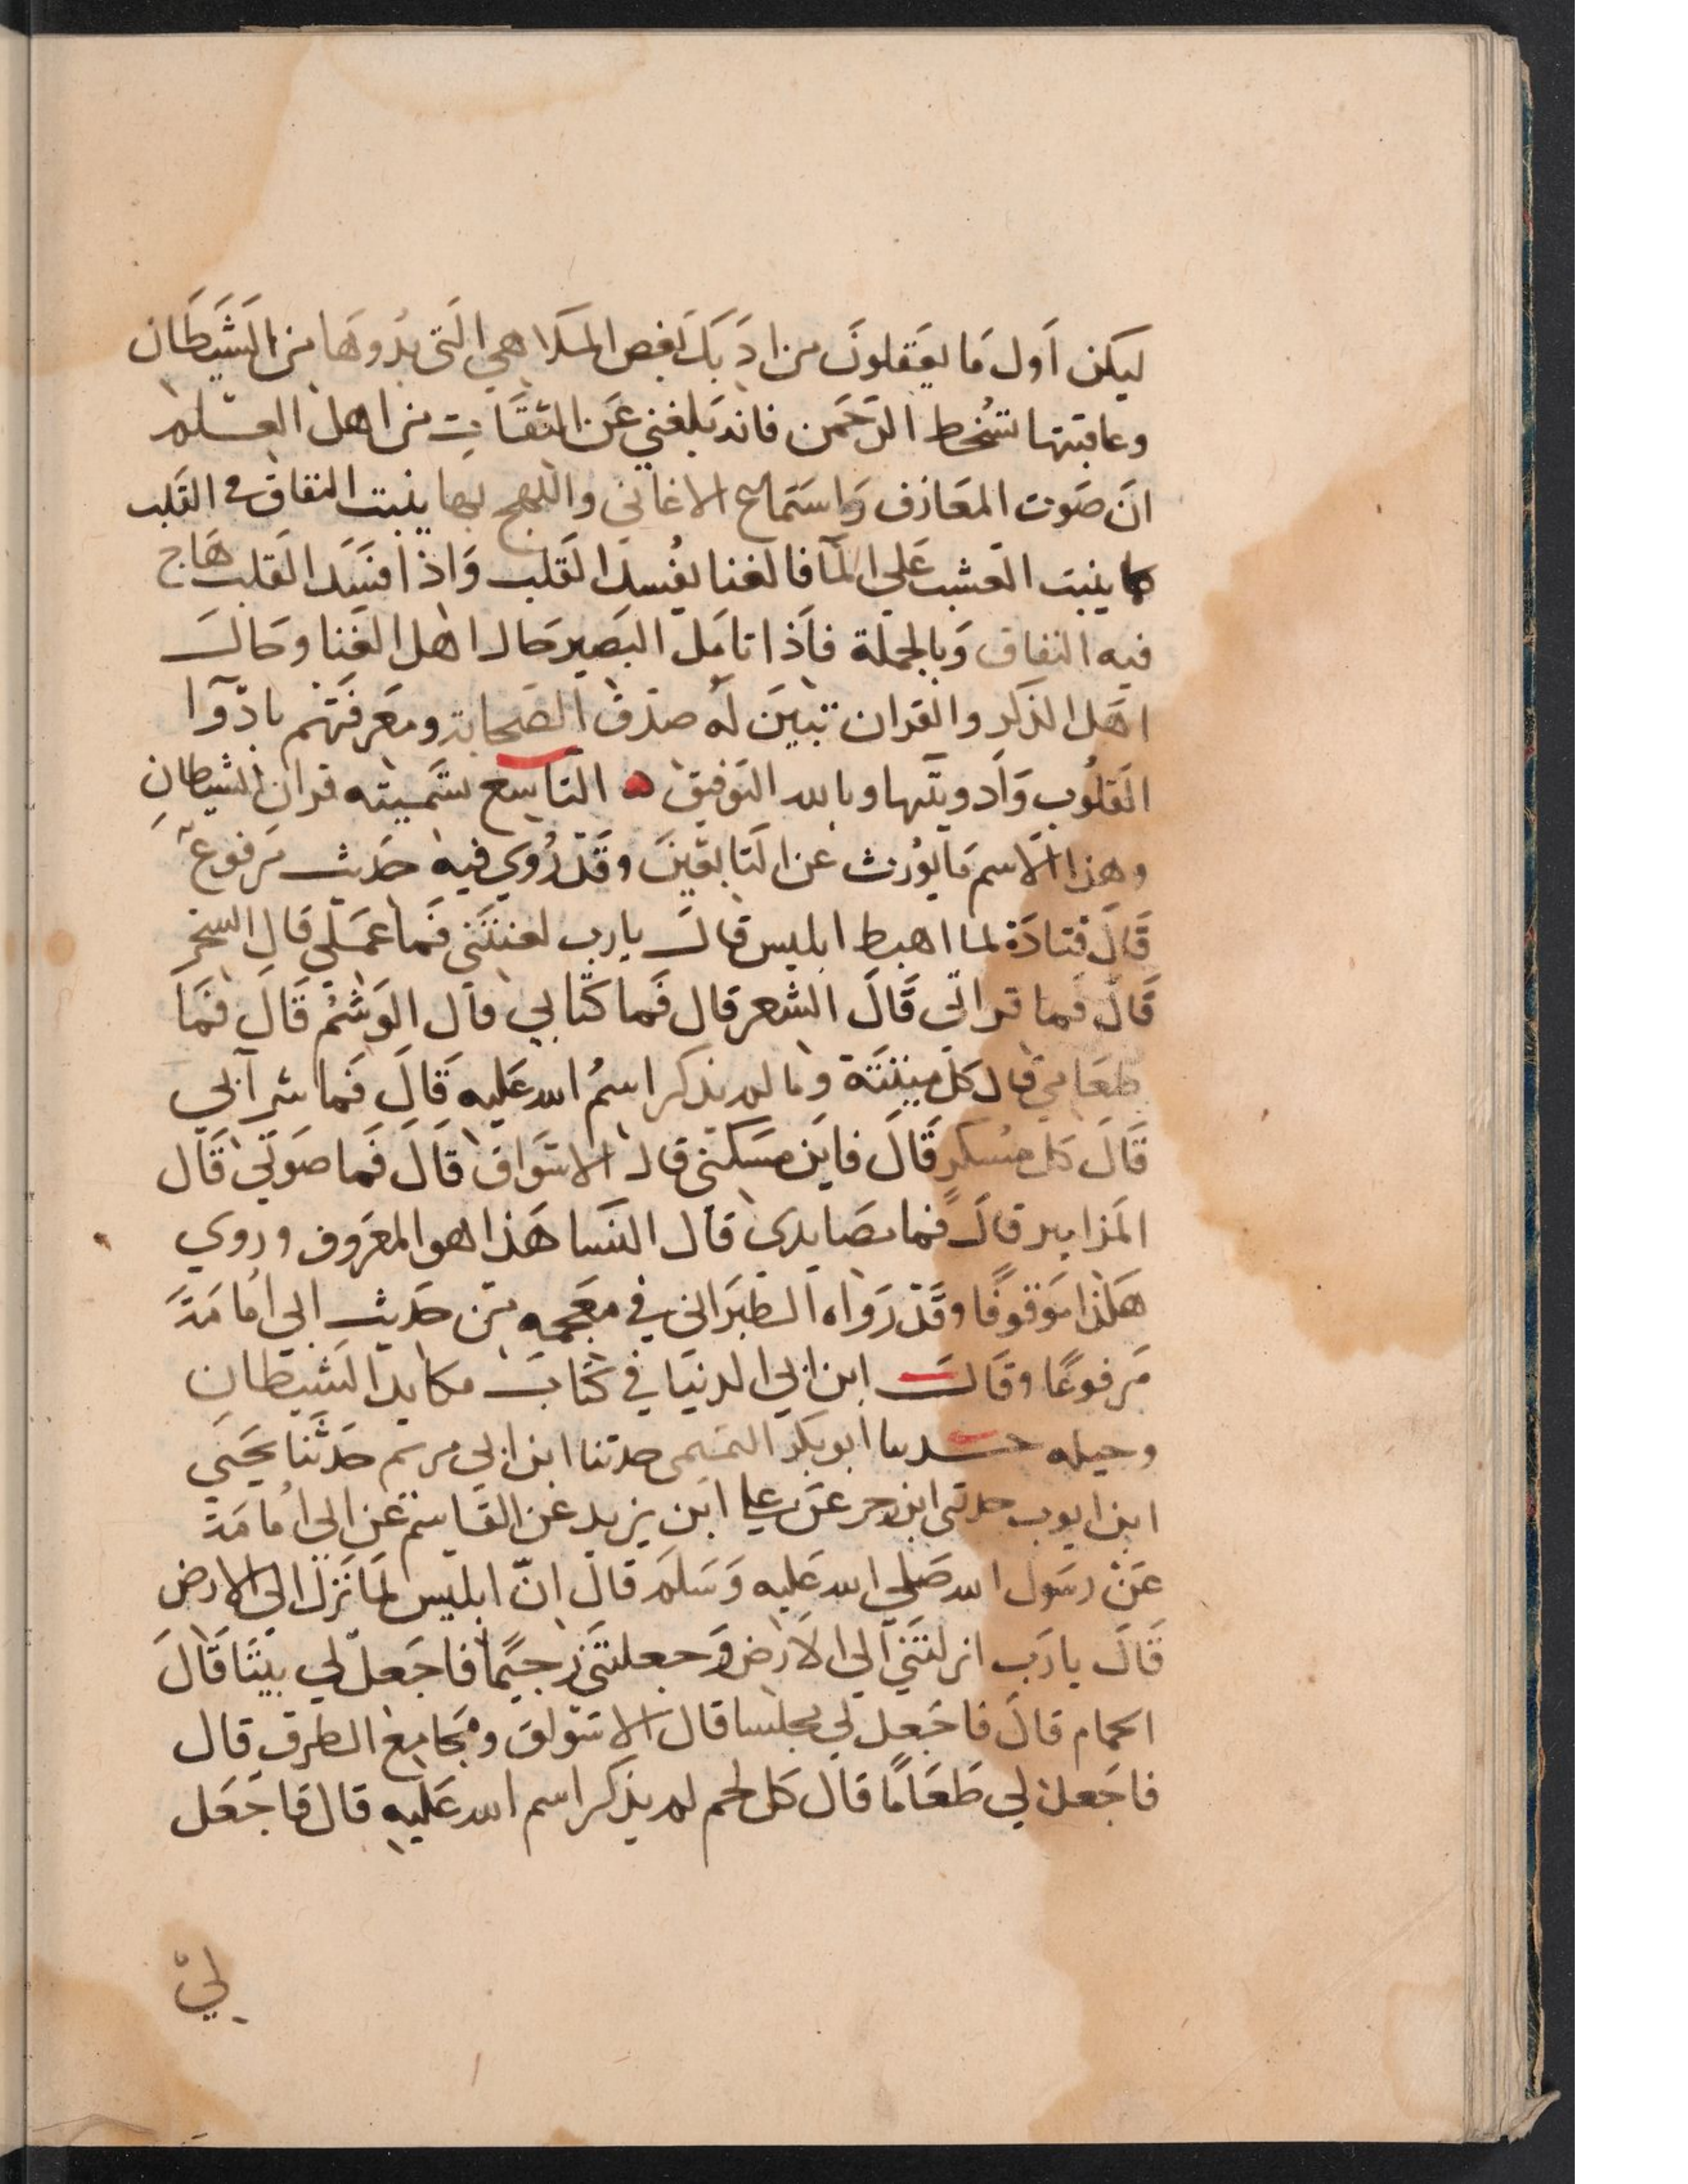 ليكن اَول مَا يعَقلونَ من ادَبكَ بَغض المَلاهي التَى بدُوهَا من الشَيطَان
وعاقبتها سُخط الرَحمَن فانه بَلغني عَن الثقَات من اهل العلم
انَ صَوت المعَازف وَاستماع الاغاني واللهج بها ينبت النفاق في القَلب
كما ينبت العشب عَلى المآ فالغنا يفُسد القَلب وَاذا افسَد القَلب هَاج
فيه النفاق وَبالجملة فاَذا تامَل البَصير حَال اهل الغَنا وحَال
اهَل الذكر والقران تبيَن لَه صدَق الصَحابة ومعَرفتهم بادَوآ
القلُوب وَاَدويتَها وبالله التوَفيق ۞ التَاسع تسَميته قران الشيطان
وهذا الاَسم مَا يوُرث عن التَابعَينَ وقَد رُوي فيه حَديث مَرفوع
قَالَ قتادَة لما اهبط ابليس قالَ يارب لعنتَني فَما عَمَلي قال السحر
قَالَ فما قراني قَالَ الشعر قال فَما كتَابي قال الوَشَم قَالَ فَمَا
طعَامي قال كل ميتَتَة وما لم يذكر اسمُ الله عَليه قَالَ فَما شرآبي
قَالَ كل مسُكر قَالَ فايَن مسَكني قال الاسَواق قَالَ فَما صَوتَي قَال
المَزامير قالَ فما مصَايدي قال النسَا هَذا هو المعَروف وروي
هَلذا موَقوفًا وقَد رَواه الطبَراني في معَجمه من حَديث ابي اُمامَة
مَرفوعًا وقَالَ ابن ابي الدنيَا في كتَاب مكايد الشيَطان
وحيله حدثنا ابو بكَر التميمي حدثنا ابن ابي مريم حَدثَنا يحَيي
ابن ايوب حدثني ابن زحر عَن علي ابن يزيد عَن القَاسم عَن ابي اُمامَة
عَنْ رسَول الله صَلي الله عَليه وَسَلم قالَ انّ ابليس لما نَزل الي الارض
قَالَ يا رَب انزلتنَي اَلي الاَرض وَجعلتنَي رَجيًما فاجَعل لي بيتَا قَالَ
الحمام قالَ فاجَعل لي مجلسا قال الاسَواق ومَجامع الطرق قال
فاجَعل لي طعَامًا قالَ كل لحم لم يذكر اسم الله عَليه قال فاجَعَل
لي